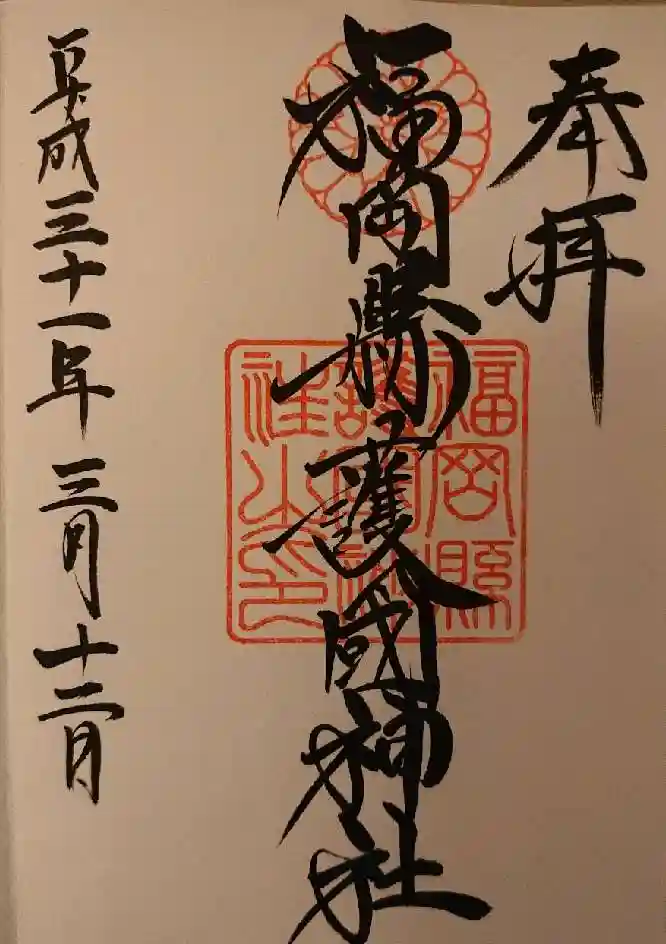 奉拝
福岡縣護國神社
福岡縣
護國神
社之印
平成三十一年三月十二日